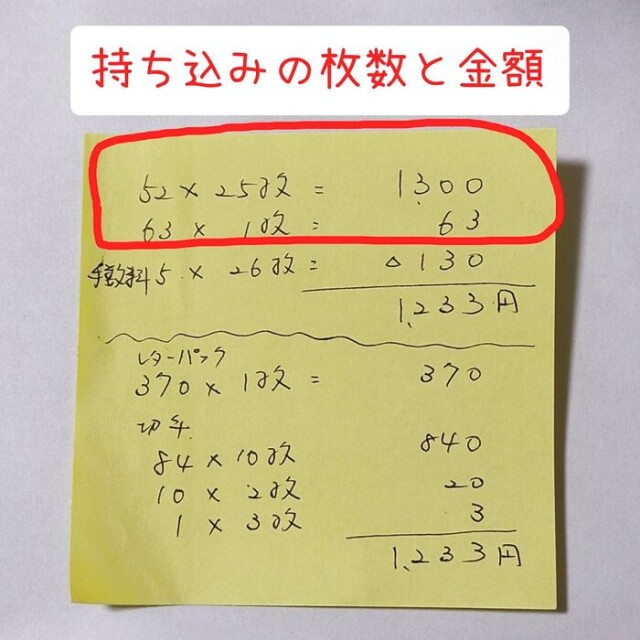 持ち込みの枚数と金額
52 × 25枚 = 1,300
63 × 1枚 = 63
手数料 5 × 26枚 = △130
1,233円
レターパック
370 × 1枚 = 370
切手
84 × 10枚 840
10 × 2枚 20
1 × 3枚 3
1,233円